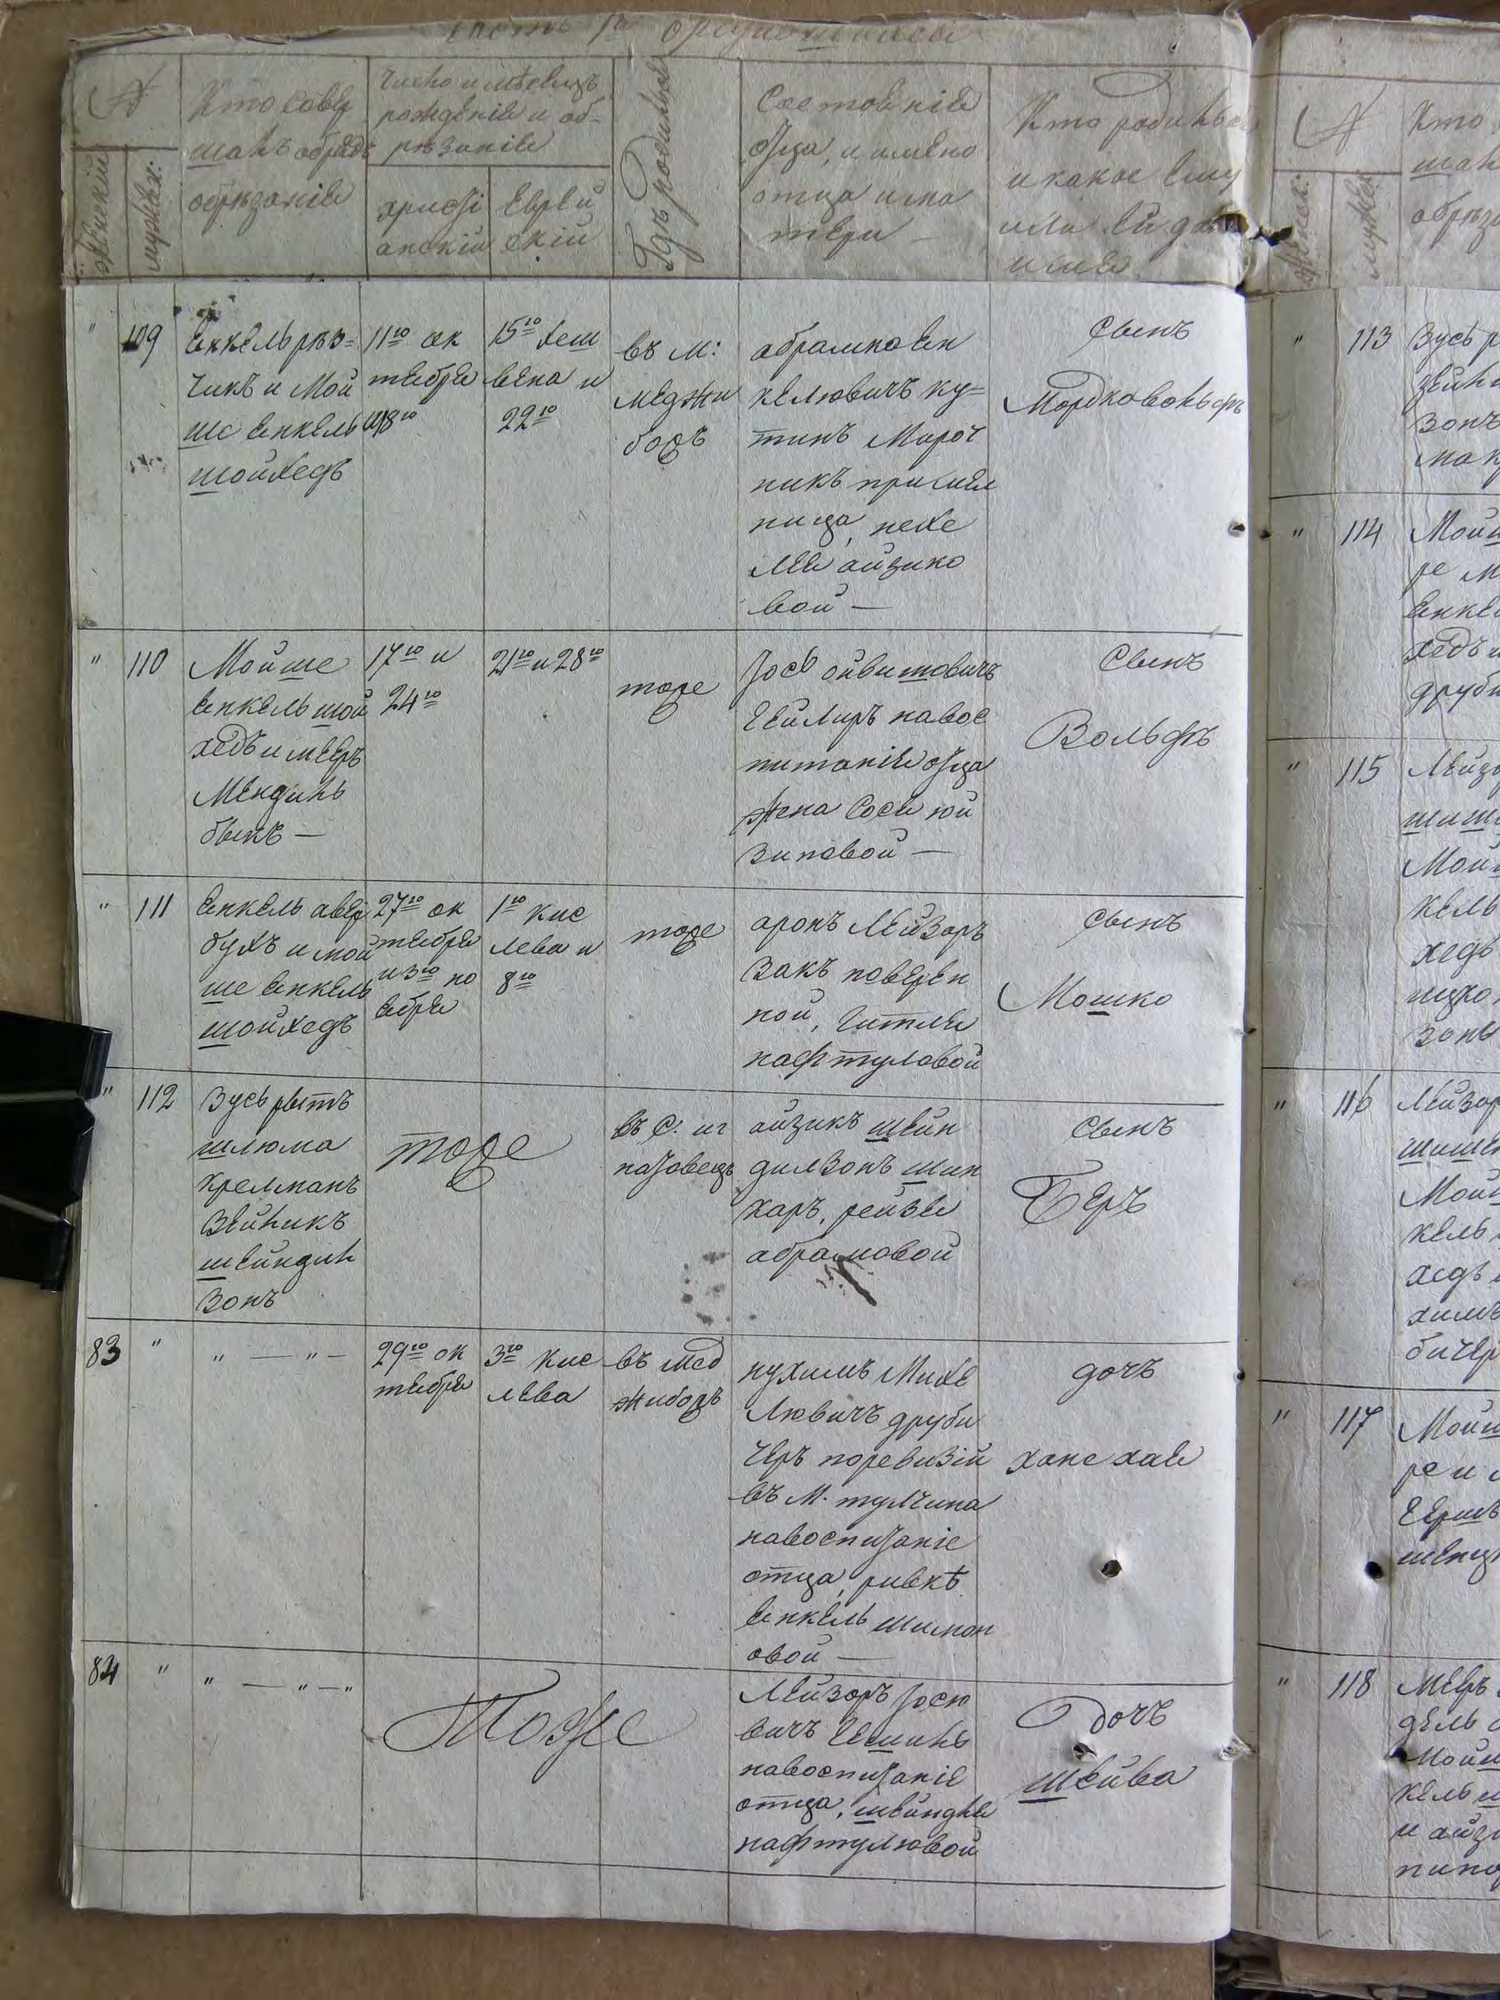 Часть 1ая о родившихся
№
женскій
мужеск:
Кто совер
шалъ обрядъ
обрѣзанія
Число и мѣсяцъ
рожденія и об-
рѣзанія
христі
анскій
Еврей
скій
Гдѣ родился
Состояніе
отца, и имена
отца и ма
тери —
Кто родился
и какое ему
или ей дано
имя
" 109
Янкель рѣз=
чикъ и Мой
ше Янкель
шойхедъ
11го ок
тября
и 18го
15го хеш
вена и
22го
въ м:
Меджи
божъ
абрамко Ян
келювичъ ку=
тинъ Мироч
никъ при мел
ница, нехе
мея айзико
вой —
Сынъ
Мордковольфъ
" 110
Мойше
Янкель шой
хедъ и мееръ
Мендиль
быкъ —
17го и
24го
21го и 28го
тоже
Іось
гейлиръ на вос
питаніе отца
жена Сося юй
зиповой —
Сынъ
Вольфъ
" 111
Янкель авер
бухъ и мой
ше Янкель
шойхедъ
27го ок
тября
и 3го но
ября
1го кис
лева и
8го
тоже
аронъ Лейзоръ
закъ поверен
ной, Гитля
нафтуловой
Сынъ
Мошко
" 112
Зусь рытъ
шлюма
крелманъ
Зейликъ
шейндил
зонъ
тоже
въ С. иг
натовецъ
айзикъ шейн
дилзонъ шин
каръ, рейзя
абрамовой
Сынъ
Беръ
83 "
" — " —
29го ок
тября
3го кис
лева
въ мед
жибожъ
нухимъ Михе
Лювичъ друби
черъ по ревизій
въ м. тулчина
на воспитаніе
отца, ривкѣ
Янкель шимон
овой —
дочъ
хане хая
84 "
" — " — "
Тоже
Лейзоръ Іосю
вичъ
на воспитаніе
отца, шейндля
нафтулювой
Дочъ
шейва
№
женск:
мужеск
Кто
шал
обрѣз
" 113
Зусь р
зейли
зонъ
мак
" 114
Мойш
ре м
Янкел
хедъ и
друби
" 115
Лейзо
шиш
Мой
кель
хедъ
зонъ
" 116
Лейзор
шишк
Мойш
кель
хедъ
химъ
бичер
" 117
Мойш
ре и
Герш
" 118
Меръ
дель
Мойш
кель ш
и айз